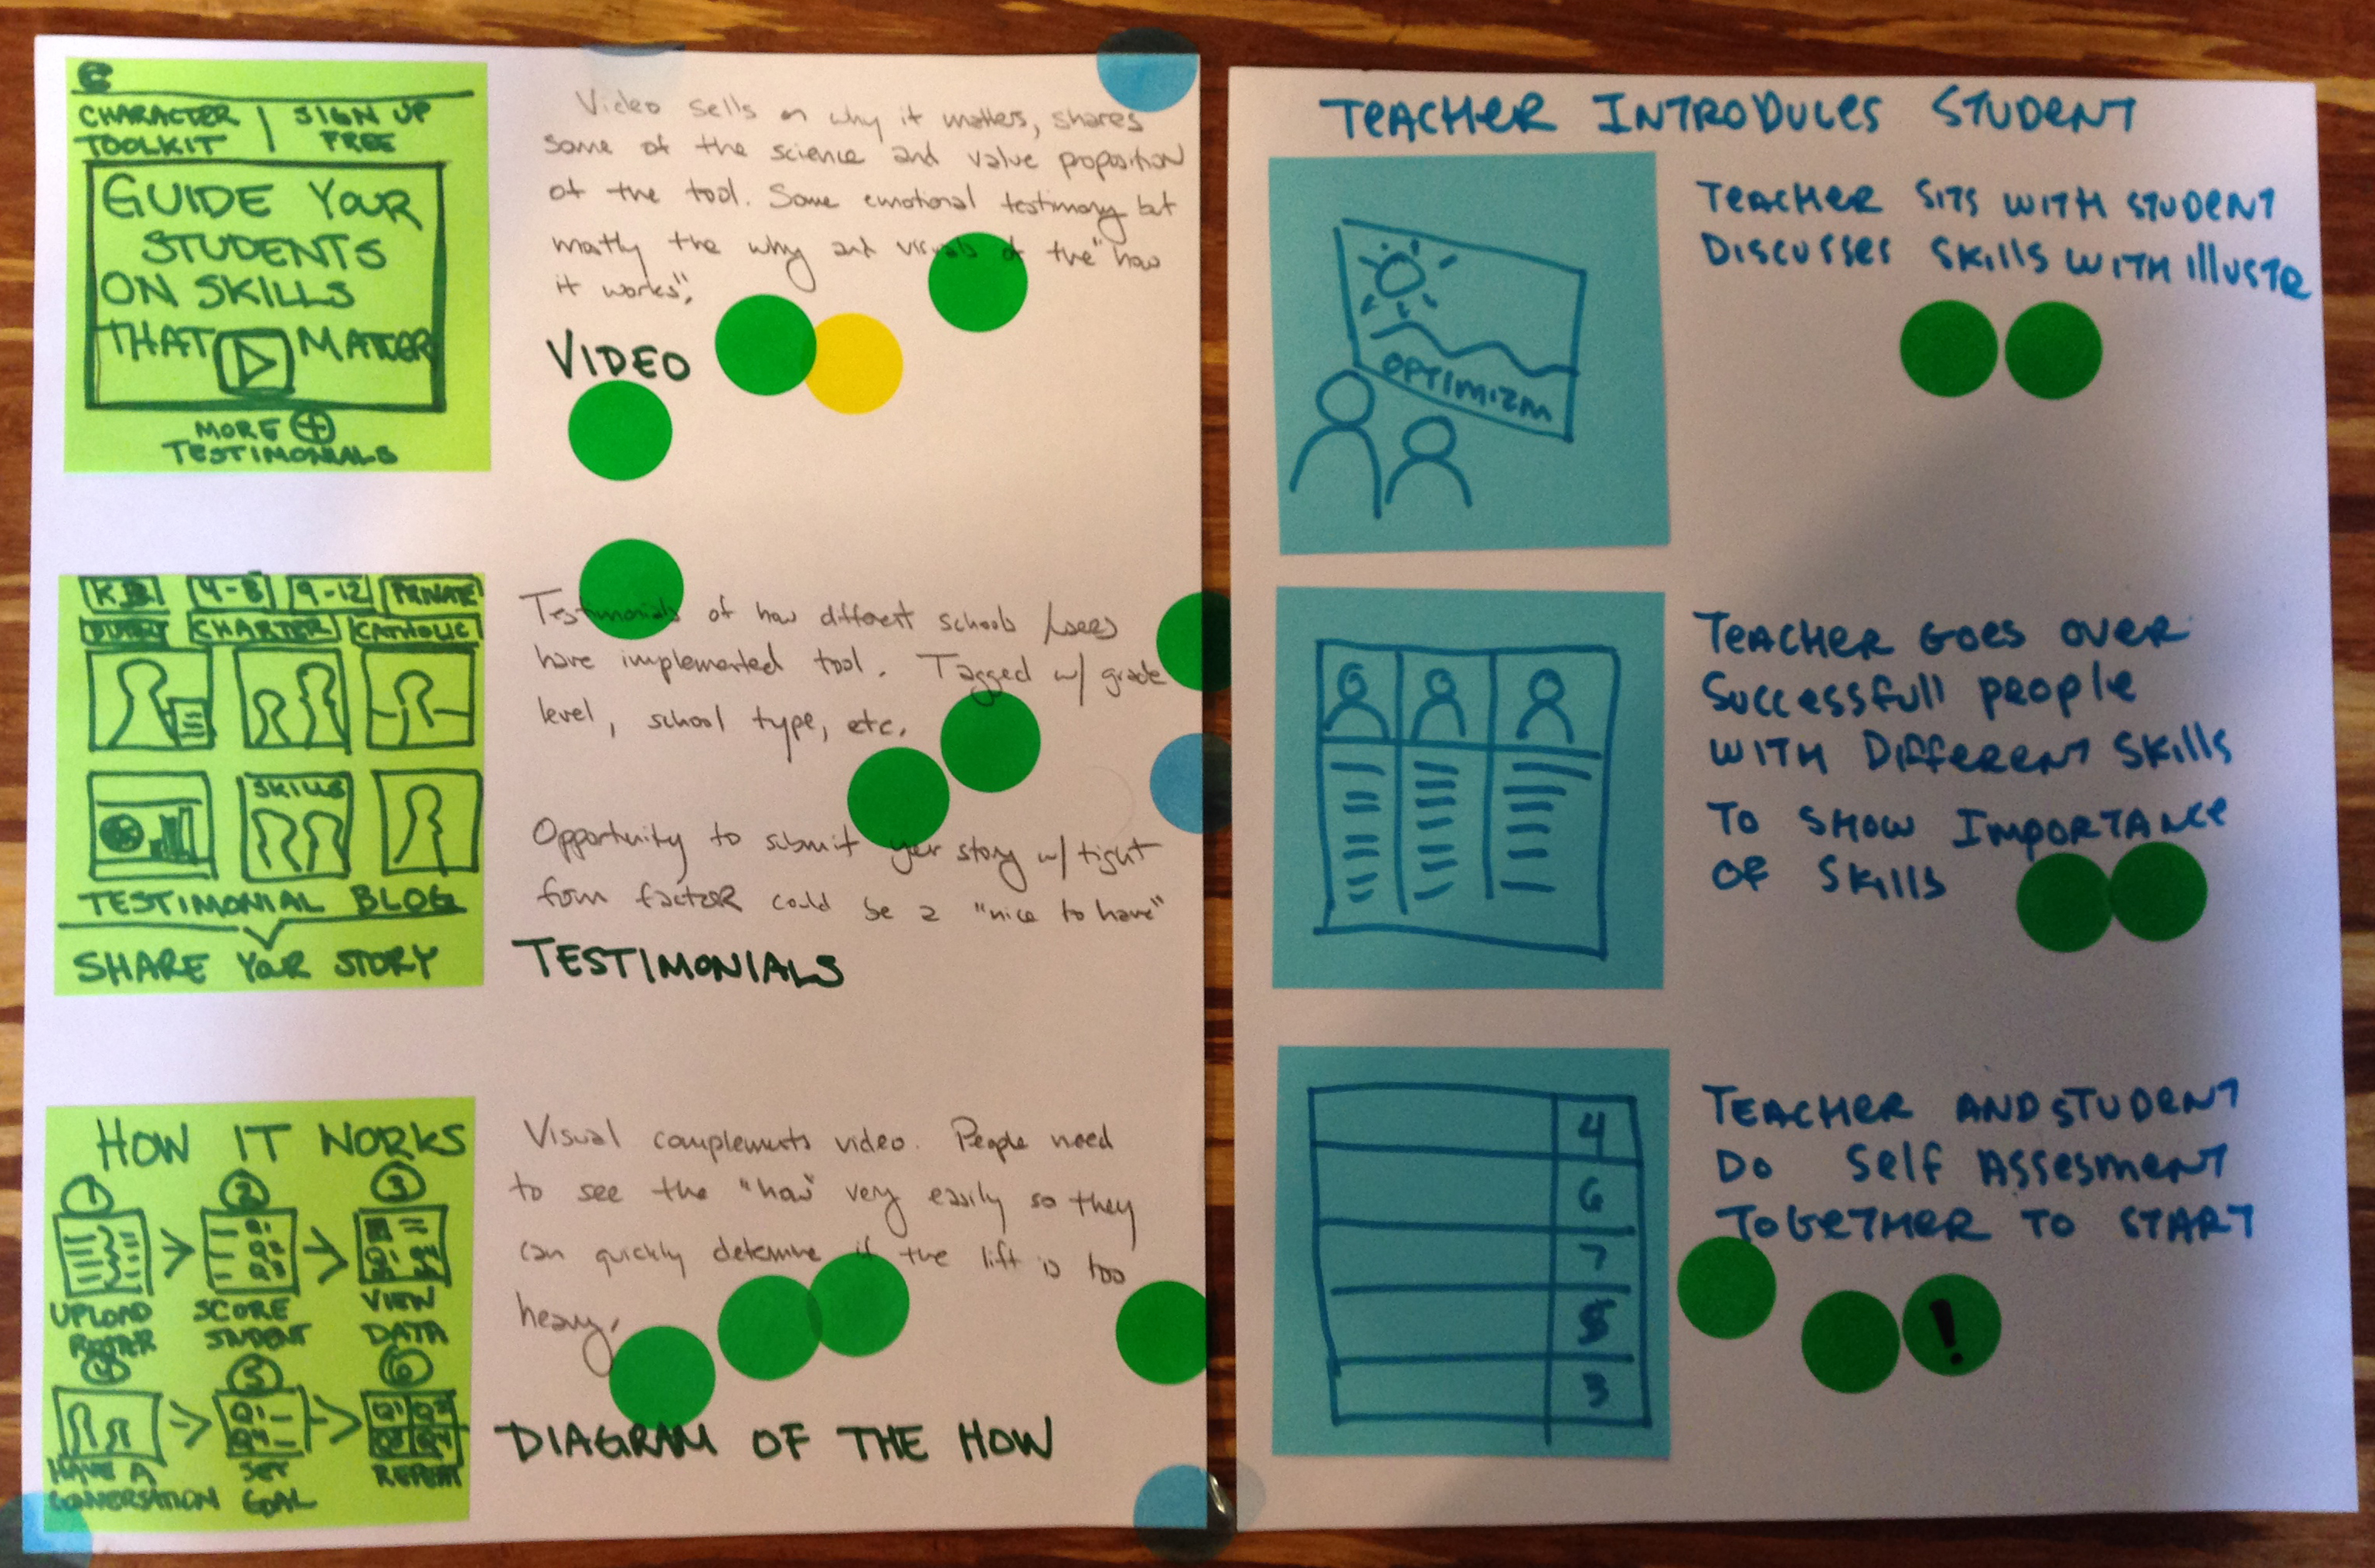 C
CHARACTER TOOLKIT | SIGN UP FREE
GUIDE YOUR
STUDENTS
ON SKILLS
THAT MATTER
MORE +
TESTIMONIALS
Video sells on why it matters, shares
some of the science and value proposition
of the tool. Some emotional testimony but
mostly the why and visuals of the "how
it works".
VIDEO
4-8 9-12 PRIVATE
CHARTER CATHOLIC
SKILLS
TESTIMONIAL BLOG
SHARE YOUR STORY
Testimonials of how different schools /users
have implemented tool. Tagged w/ grade
level, school type, etc.
Opportunity to submit your story w/ tight
form factor could be a "nice to have"
TESTIMONIALS
HOW IT WORKS
1 2 3
Q1
Q2
Q3
Q1 Q4
UPLOAD ROSTER
SCORE STUDENT
VIEW DATA
4 5 6
Q1
Q4
Q1 Q2
Q3 Q4
HAVE A CONVERSATION
SET GOAL
REPEAT
Visual complements video. People need
to see the "how" very easily so they
can quickly determine if the lift is too
heavy.
DIAGRAM OF THE HOW
TEACHER INTRODUCES STUDENT
OPTIMIZM
TEACHER SITS WITH STUDENT
DISCUSSES SKILLS WITH ILLUSTR
TEACHER GOES OVER
SUCCESSFULL PEOPLE
WITH DIFFERENT SKILLS
TO SHOW IMPORTANCE
OF SKILLS
4
6
7
3
TEACHER AND STUDENT
DO SELF ASSESMENT
TOGETHER TO START
!